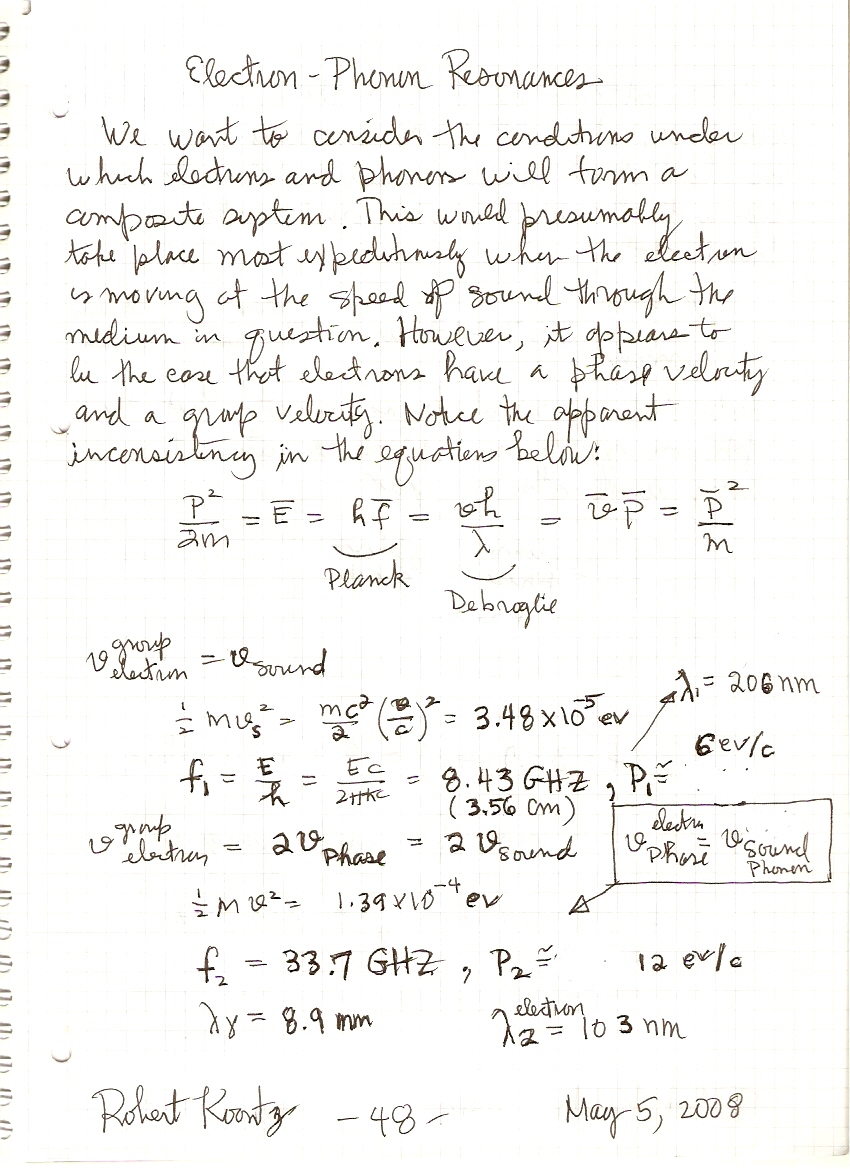 Electron - Phonon Resonances
We want to consider the conditions under
which electrons and phonons will form a
composite system. This would presumably
take place most expeditiously when the electron
is moving at the speed of sound through the
medium in question. However, it appears to
be the case that electrons have a phase velocity
and a group velocity. Notice the apparent
inconsistency in the equations below:
P²/2m = E̅ = h f̅ = vh/λ = v̅ P̅ = P̅²/m
Planck
Debroglie
v group electron = v sound
λ₁ = 206 nm
½ m vₛ² = mc²/2 (v/c)² = 3.48 x 10⁻⁵ ev
6 ev/c
f₁ = E/h = Ec/2πħc = 8.43 GHZ , P₁ ≅
(3.56 cm)
v group electron = 2 v Phase = 2 v sound
v electron Phase = v Sound Phonon
½ m v² = 1.39 x 10⁻⁴ ev
f₂ = 33.7 GHZ , P₂ ≅ 12 ev/c
λγ = 8.9 mm
λ₂ electron = 103 nm
Robert Koontz - 48 - May 5, 2008